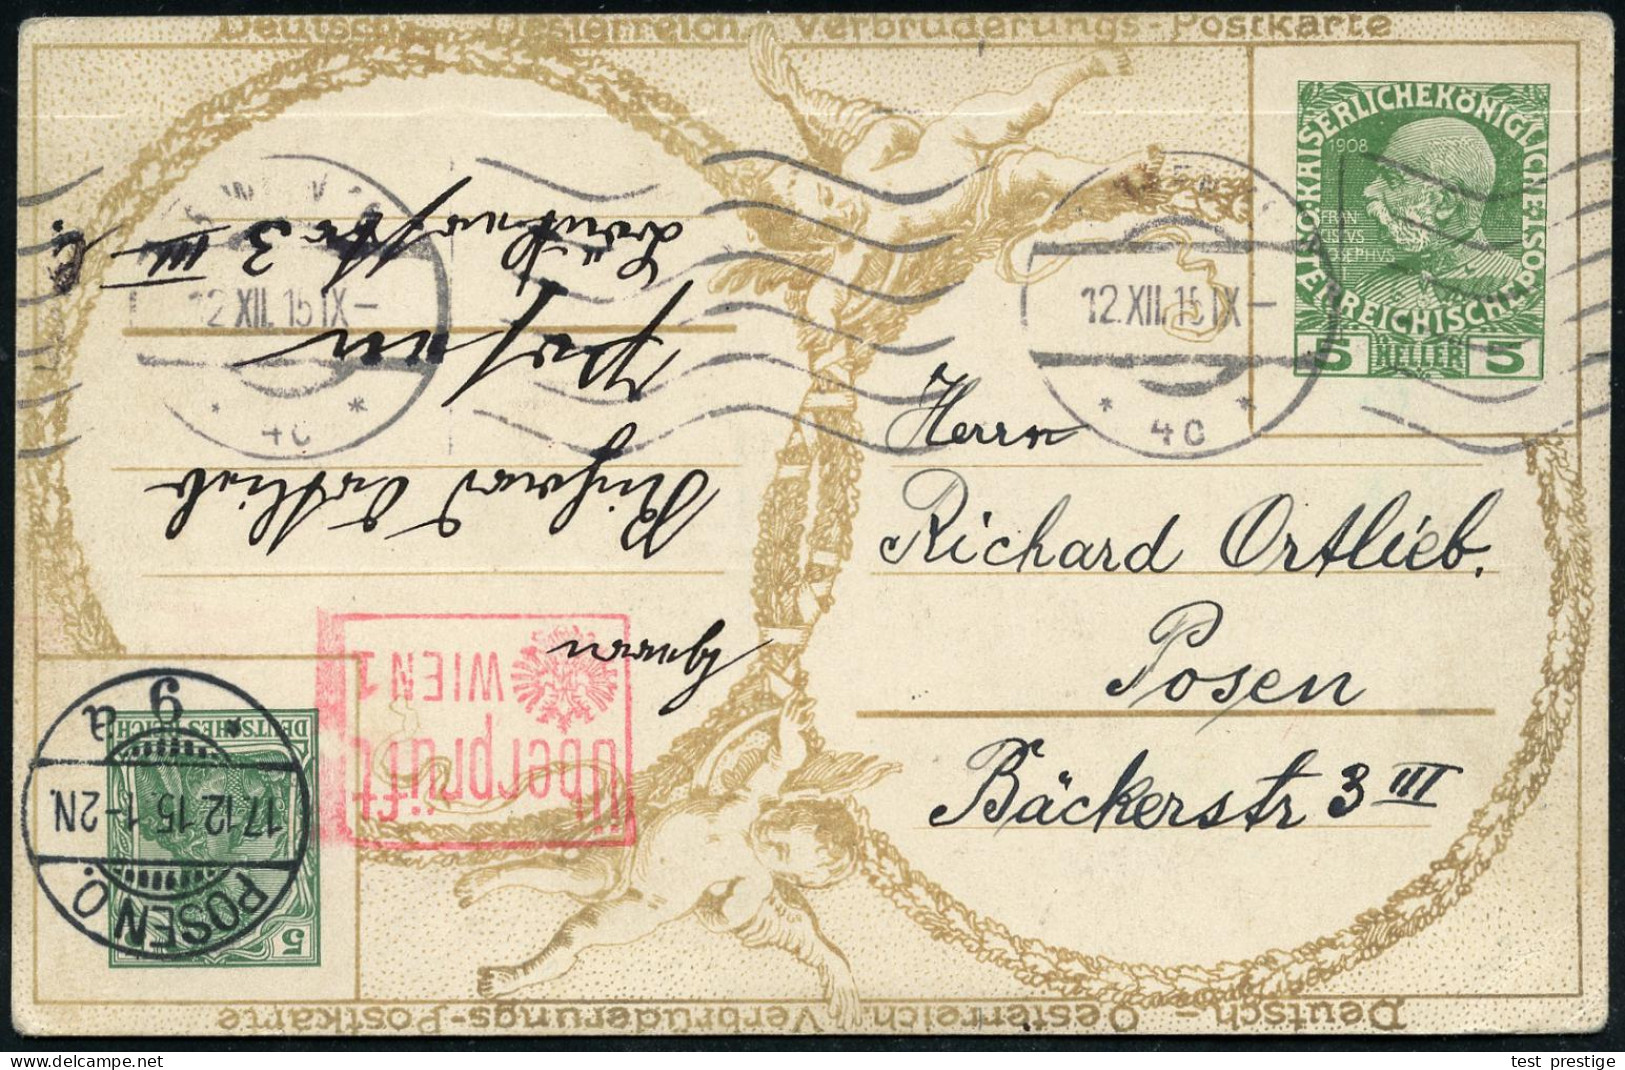 Deutsch - Oesterreich. Verbrüderungs-Postkarte
KAISERLICHE KÖNIGLICHE
ÖSTERREICHISCHE POST
1908
FRAN
JOSEPHVS
5 HELLER 5
12.XII.15 IX-
4c
12.XII.15 IX-
4c
Herrn
Richard Ortlieb.
Posen
Bäckerstr 3 III
Herrn
Richard Ortlieb
Posen
3 III
Überprüft
WIEN 1
DEUTSCHES REICH
5
POSEN O.
17.12.15 1-2N.
* 9 a
Deutsch - Oesterreich. Verbrüderungs-Postkarte
test prestige